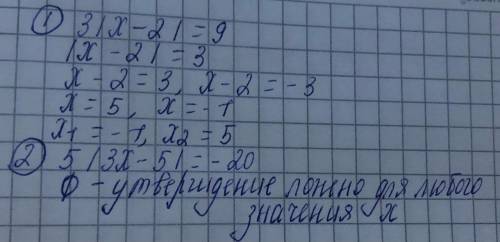 ① 3|x-2|=9
|x-2|=3
x-2=3, x-2=-3
x=5, x=-1
x₁=-1, x₂=5
② 5|3x-5|=-20
Ф - утверждение ложно для любого
значения x